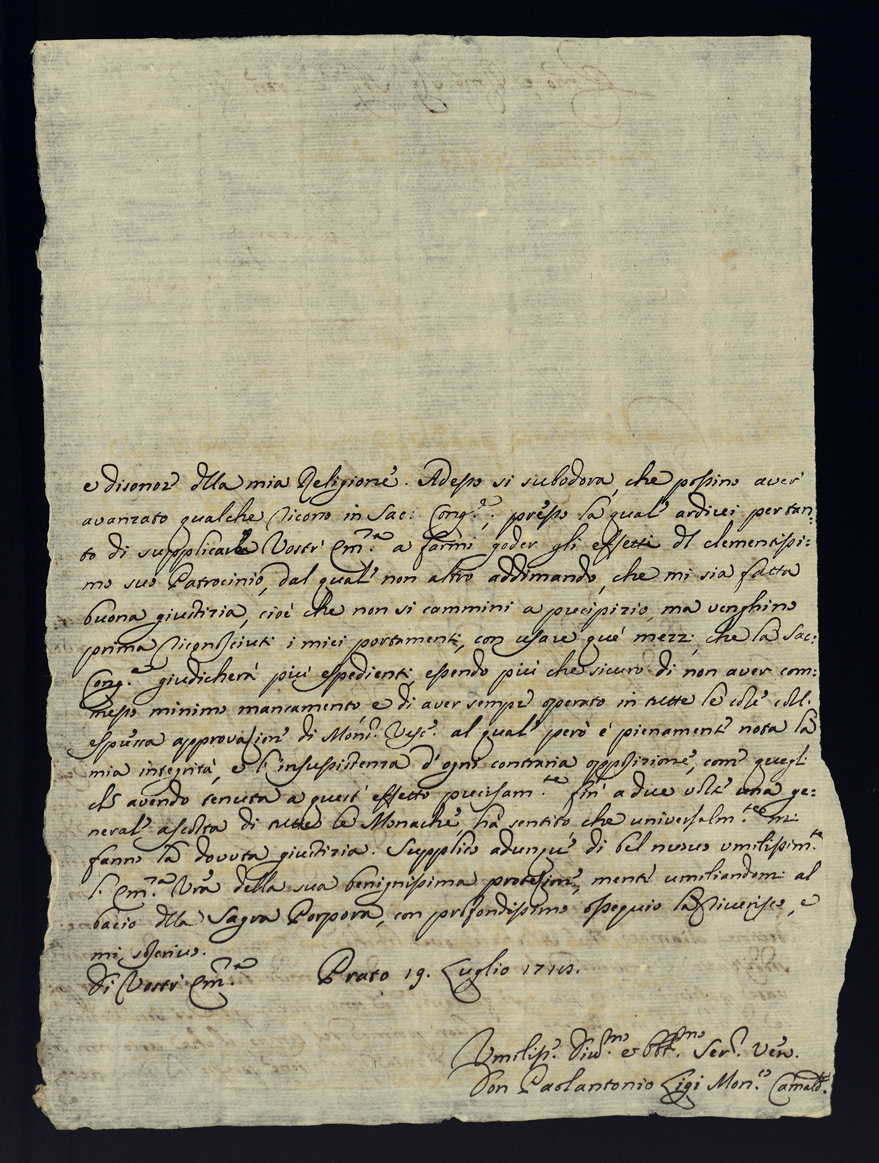 e disonor dlla mia Religione. Adesso si subodora, che possino aver
avanzato qualche ricorso in Sac: Cong.e, presso la qual' ardirei pertan:
to di supplicarLe Vostr' Em.za a farmi goder gli effetti dl clementissi:
mo suo Patrocinio, dal qual' non altro addimando, che mi sia fatta
buona giustizia, cioè che non si cammini a precipizio, ma venghino
prima riconosciuti i miei portamenti, con usare que' mezzi, che la Sac:
Cong.e giudicherà più espedienti, essendo più che sicuro di non aver com:
messo minimo mancamento e di aver sempr' operato in tutte le cose coll'
espressa approvazion' di Mons.r Vesc.o al qual' però è pienament' nota la
mia integrità, e l'insussistenza d'ogni contraria opposizione, com' quegli
ch' avendo tenuta a quest' effetto precisam.te fin' a due volte una ge:
neral' ascolta di tutte le Monache, ha sentito che universalm.te mi
fanno la dovuta giustizia. Supplico adunque di bel nuovo umilissim.te
l' Em.za Vra della sua benignissima protezion', mentr' umiliandomi al
bacio dlla Sagra Porpora, con profondissimo ossequio la riverisco, e
mi soscrivo.
Di Vostr' Em.za Prato 19. Luglio
Umiliss.o Div.mo et Obb.mo Ser.e Vero.
Don Paolantonio Ligi Mon.co Camald.e